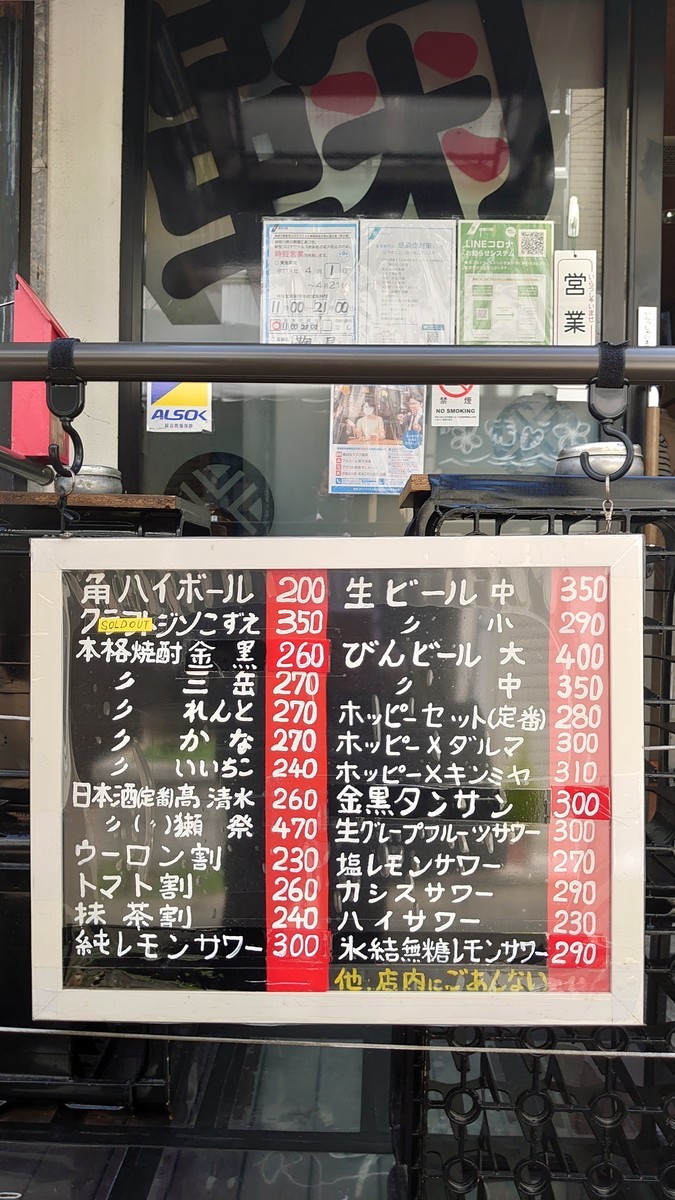 LINEコロナ
お知らせシステム
感染症対策
時短営業
4月1日
～4月21日
11:00 21:00
営業
いらっしゃいませ
ALSOK
禁煙
NO SMOKING
角ハイボール 200
クラフトジンこずえ 350
SOLD OUT
本格焼酎 金黒 260
〃 三缶 270
〃 れんと 270
〃 かな 270
〃 いいちこ 240
日本酒(定番)高清水 260
〃 (〃)獺祭 470
ウーロン割 230
トマト割 260
抹茶割 240
純レモンサワー 300
生ビール 中 350
〃 小 290
びんビール 大 400
〃 中 350
ホッピーセット(定番) 280
ホッピー×ダルマ 300
ホッピー×キンミヤ 310
金黒タンサン 300
生グレープフルーツサワー 300
塩レモンサワー 270
カシスサワー 290
ハイサワー 230
氷結無糖レモンサワー 290
他、店内にごあんない